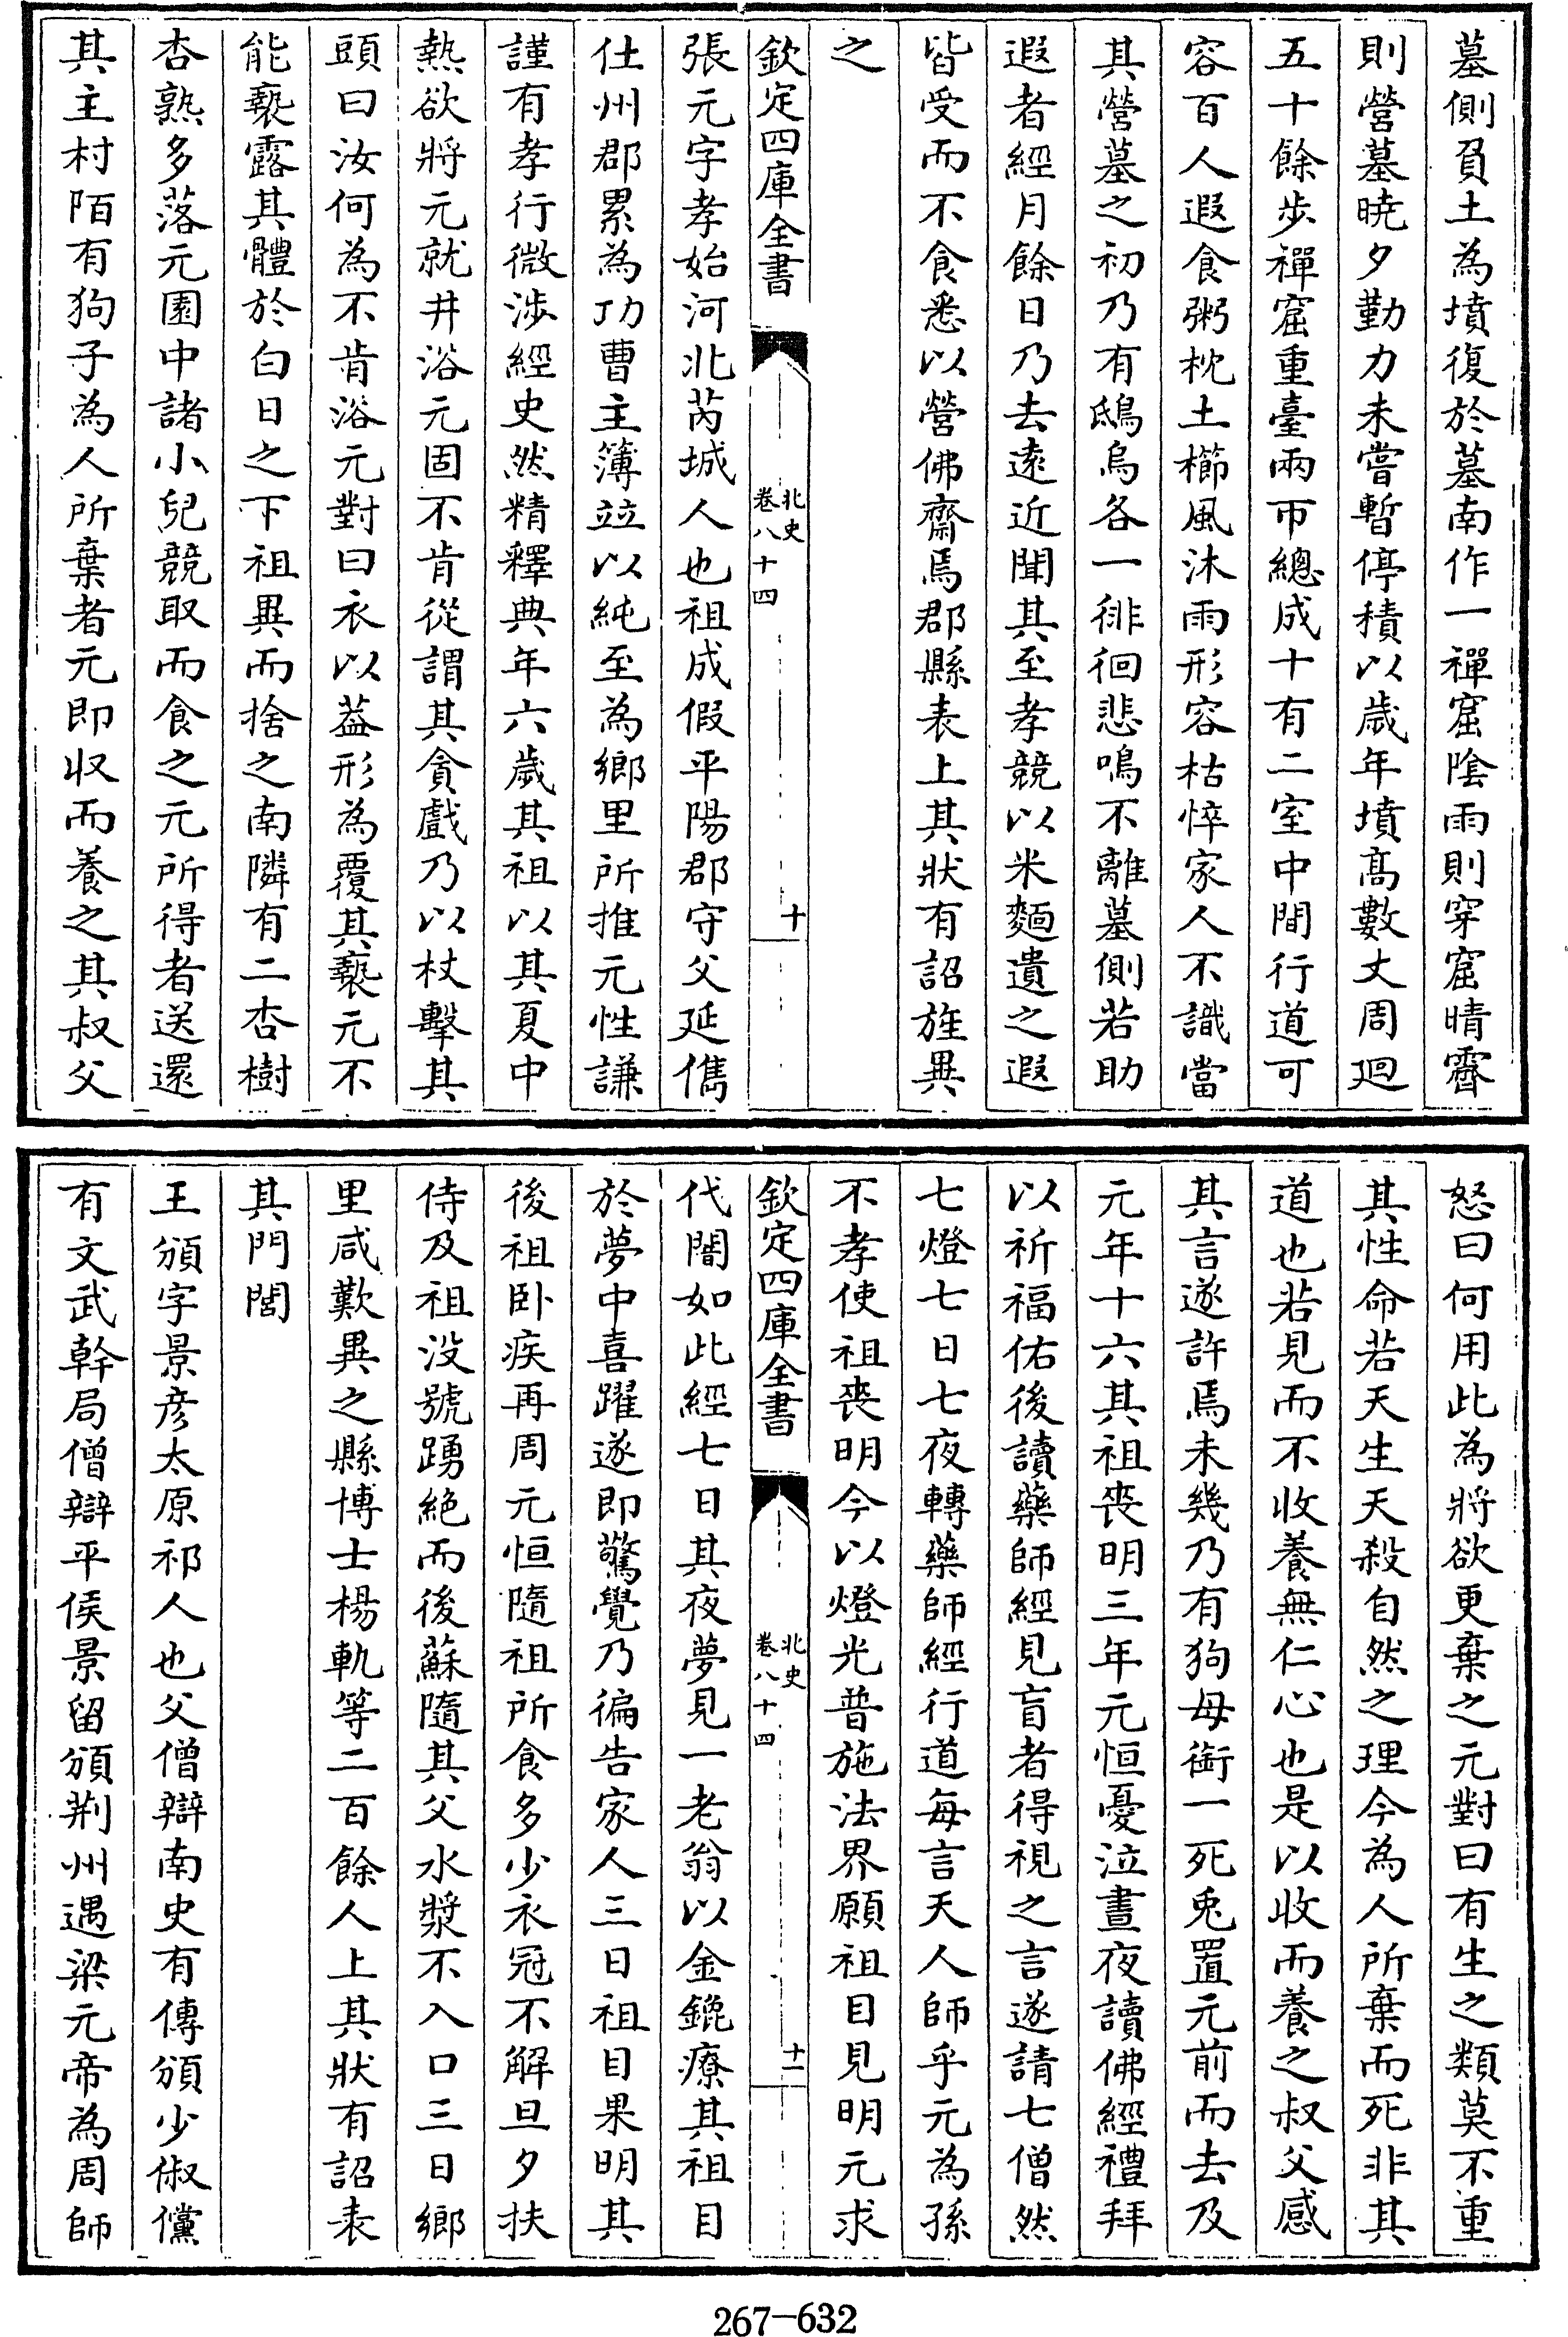 墓側負土為墳復於墓南作一禪窟陰雨則穿窟晴霽
則營墓曉夕勤力未嘗暫停積以歲年墳髙數丈周廻
五十餘步禪窟重臺兩帀總成十有二室中間行道可
容百人遐食粥枕土櫛風沐雨形容枯悴家人不識當
其營墓之初乃有鴟烏各一徘徊悲鳴不離墓側若助
遐者經月餘日乃去逺近聞其至孝競以米麵遺之遐
皆受而不食悉以營佛齋焉郡縣表上其狀有詔旌異
之
欽定四庫全書
北史
卷八十四
十
張元字孝始河北芮城人也祖成假平陽郡守父延儁
仕州郡累為功曹主簿竝以純至為鄉里所推元性謙
謹有孝行微涉經史然精釋典年六歲其祖以其夏中
熱欲將元就井浴元固不肯從謂其貪戲乃以杖擊其
頭曰汝何為不肯浴元對曰衣以葢形為覆其褻元不
能褻露其體於白日之下祖異而捨之南隣有二杏樹
杏熟多落元園中諸小兒競取而食之元所得者送還
其主村陌有狗子為人所棄者元即收而養之其叔父
怒曰何用此為將欲更棄之元對曰有生之類莫不重
其性命若天生天殺自然之理今為人所棄而死非其
道也若見而不收養無仁心也是以收而養之叔父感
其言遂許焉未幾乃有狗母銜一死兎置元前而去及
元年十六其祖喪明三年元恒憂泣晝夜讀佛經禮拜
以祈福佑後讀藥師經見盲者得視之言遂請七僧然
七燈七日七夜轉藥師經行道每言天人師乎元為孫
不孝使祖喪明今以燈光普施法界願祖目見明元求
欽定四庫全書
北史
卷八十四
十一
代闇如此經七日其夜夢見一老翁以金鎞療其祖目
於夢中喜躍遂即驚覺乃徧告家人三日祖目果明其
後祖卧疾再周元恒隨祖所食多少衣冠不解旦夕扶
侍及祖没號踴絶而後蘇隨其父水漿不入口三日鄉
里咸歎異之縣博士楊軌等二百餘人上其狀有詔表
其門閭
王頒字景彦太原祁人也父僧辯南史有傳頒少俶儻
有文武幹局僧辯平侯景留頒荆州遇梁元帝為周師
267-632